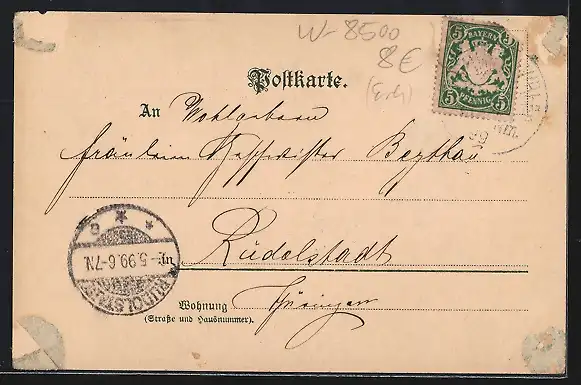 W-8500
8€
BAYERN
5 5
5 PFENNIG 5
99
Postkarte.
An Wohlgeboren
Fräulein
Rudolstadt
in
Wohnung Thüringen
(Straße und Hausnummer).
RUDOLSTADT
5.99.6-7N.
c